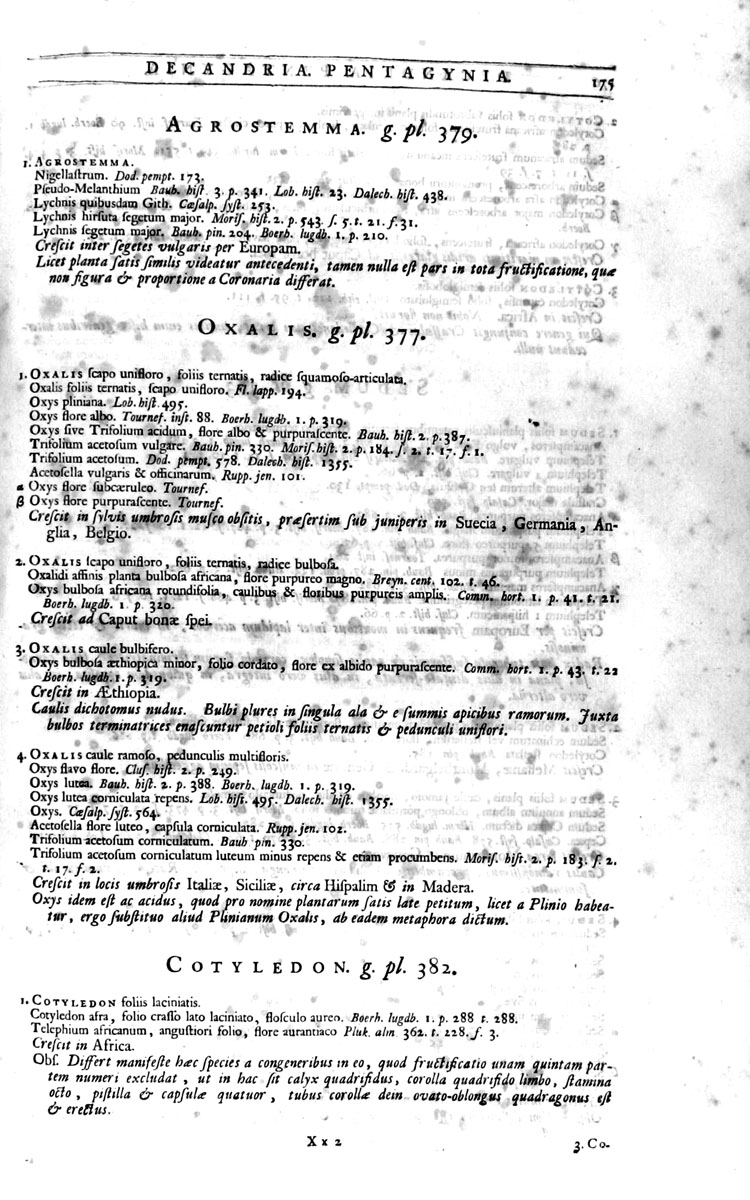 DECANDRIA. PENTAGYNIA.
175
AGROSTEMMA. g. pl. 379.
1. AGROSTEMMA.
Nigellaſtrum. Dod. pempt. 173.
Pſeudo-Melanthium Bauh. hiſt. 3. p. 341. Lob. hiſt. 23. Dalech. hiſt. 438.
Lychnis quibusdam Gith. Cæſalp. ſyſt. 253.
Lychnis hirſuta ſegetum major. Moriſ. hiſt. 2. p. 543. ſ. 5. t. 21. f. 31.
Lychnis ſegetum major. Bauh. pin. 204. Boerh. lugdb. 1. p. 210.
Creſcit inter ſegetes vulgaris per Europam.
Licet planta ſatis ſimilis videatur antecedenti, tamen nulla eſt pars in tota fructificatione, quæ
non figura & proportione a Coronaria differat.
OXALIS. g. pl. 377.
1. OXALIS ſcapo unifloro, foliis ternatis, radice ſquamoſo-articulata.
Oxalis foliis ternatis, ſcapo unifloro. Fl. lapp. 194.
Oxys pliniana. Lob. hiſt. 495.
Oxys flore albo. Tournef. inſt. 88. Boerh. lugdb. 1. p. 319.
Oxys ſive Trifolium acidum, flore albo & purpuraſcente. Bauh. hiſt. 2. p. 387.
Trifolium acetoſum vulgare. Bauh. pin. 330. Moriſ. hiſt. 2. p. 184. ſ. 2. t. 17. f. 1.
Trifolium acetoſum. Dod. pempt. 578. Dalech. hiſt. 1355.
Acetoſella vulgaris & officinarum. Rupp. jen. 101.
α Oxys flore ſubcæruleo. Tournef.
β Oxys flore purpuraſcente. Tournef.
Creſcit in ſylvis umbroſis muſco obſitis, præſertim ſub juniperis in Suecia, Germania, An-
glia, Belgio.
2. OXALIS ſcapo unifloro, foliis ternatis, radice bulboſa.
Oxalidi affinis planta bulboſa africana, flore purpureo magno. Breyn. cent. 102. t. 46.
Oxys bulboſa africana rotundifolia, caulibus & floribus purpureis amplis. Comm. hort. 1. p. 41. t. 21.
Boerh. lugdb. 1. p. 320.
Creſcit ad Caput bonæ ſpei.
3. OXALIS caule bulbifero.
Oxys bulboſa æthiopica minor, folio cordato, flore ex albido purpuraſcente. Comm. hort. 1. p. 43. t. 22
Boerh. lugdb. 1. p. 319.
Creſcit in Æthiopia.
Caulis dichotomus nudus. Bulbi plures in ſingula ala & e ſummis apicibus ramorum. Juxta
bulbos terminatrices enaſcuntur petioli foliis ternatis & pedunculi uniflori.
4. OXALIS caule ramoſo, pedunculis multifloris.
Oxys flavo flore. Cluſ. hiſt. 2. p. 249.
Oxys lutea. Bauh. hiſt. 2. p. 388. Boerh. lugdb. 1. p. 319.
Oxys lutea corniculata repens. Lob. hiſt. 495. Dalech. hiſt. 1355.
Oxys. Cæſalp. ſyſt. 564.
Acetoſella flore luteo, capſula corniculata. Rupp. jen. 102.
Trifolium acetoſum corniculatum. Bauh pin. 330.
Trifolium acetoſum corniculatum luteum minus repens & etiam procumbens. Moriſ. hiſt. 2. p. 183. ſ. 2.
t. 17. f. 2.
Creſcit in locis umbroſis Italiæ, Siciliæ, circa Hiſpalim & in Madera.
Oxys idem eſt ac acidus, quod pro nomine plantarum ſatis late petitum, licet a Plinio habea-
tur, ergo ſubſtituo aliud Plinianum Oxalis, ab eadem metaphora dictum.
COTYLEDON. g. pl. 382.
1. COTYLEDON foliis laciniatis.
Cotyledon afra, folio craſſo lato laciniato, floſculo aureo. Boerh. lugdb. 1. p. 288 t. 288.
Telephium africanum, anguſtiori folio, flore aurantiaco Pluk. alm 362. t. 228. f. 3.
Creſcit in Africa.
Obſ. Differt manifeſte hæc ſpecies a congeneribus in eo, quod fructificatio unam quintam par-
tem numeri excludat, ut in hac ſit calyx quadrifidus, corolla quadrifido limbo, ſtamina
octo, piſtilla & capſulæ quatuor, tubus corollæ dein ovato-oblongus quadragonus eſt
& erectus.
Xx 2
3. Co-